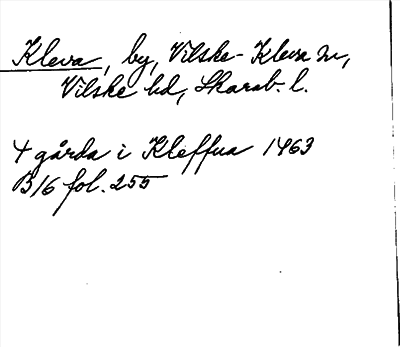 Kleva, by, Vilske-Kleva sn,
Vilske hd, Skarab. l.
4 gårda i Kleffua 1463
B16 fol. 255